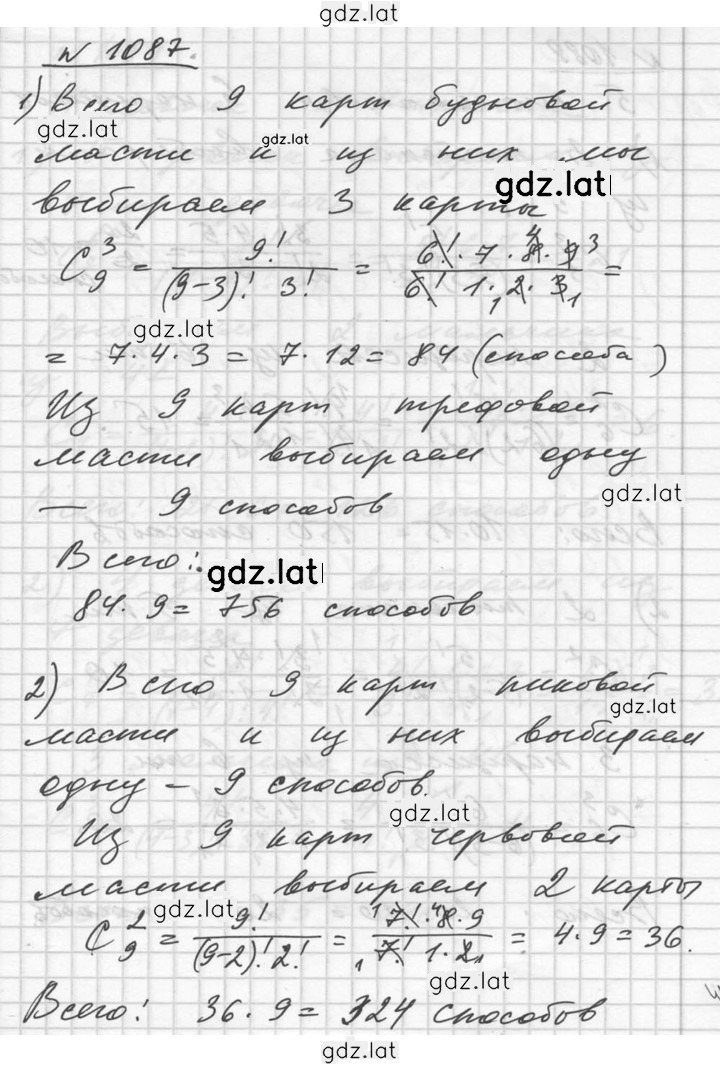 gdz.lat
N 1087.
1) Всего 9 карт бубновой
gdz.lat gdz.lat
масти и из них мы
gdz.lat
выбираем 3 карты
C₉³ = 9! / (9-3)! 3! = 6! · 7 · 8 4 · 9 3 / 6! 1 · 2 1 · 3 1 =
gdz.lat
= 7 · 4 · 3 = 7 · 12 = 84 (способа)
Из 9 карт трефовой
масти выбираем одну
gdz.lat
— 9 способов
Всего:
gdz.lat
84 · 9 = 756 способов
2) Всего 9 карт пиковой
gdz.lat
масти и из них выбираем
одну – 9 способов.
gdz.lat
Из 9 карт червовой
масти выбираем 2 карты
gdz.lat
C₉² = 9! / (9-2)! 2! = 1 7! · 4 8 · 9 / 1 7! 1 · 2 1 = 4 · 9 = 36.
gdz.lat
Всего: 36 · 9 = 324 способов
gdz.lat